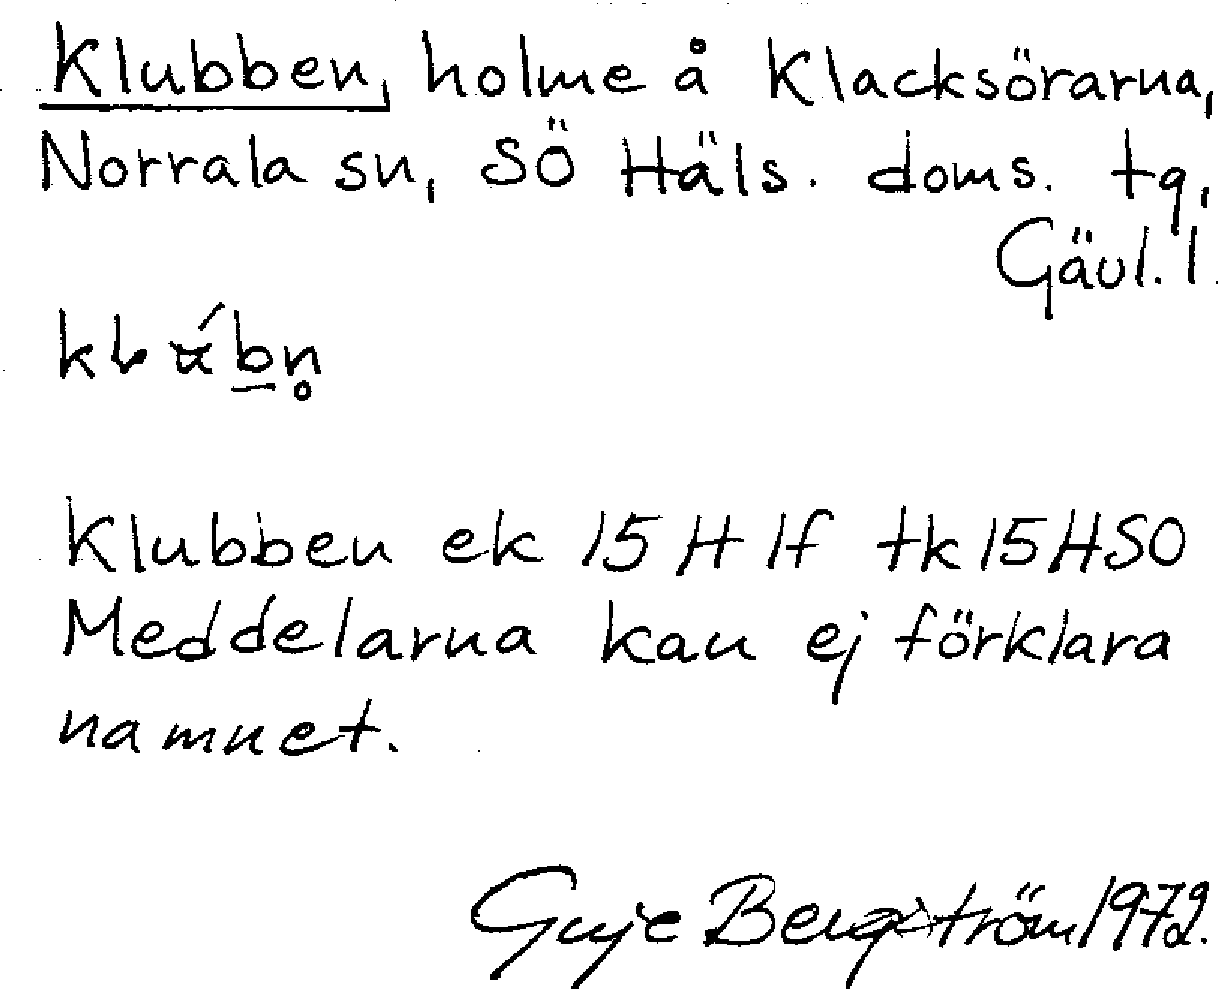 Klubben, holme å Klacksörarna,
Norrala sn, SÖ Häls. doms. tg,
Gävl. l.
Klubben ek 15 H 1f tk 15 H SO
Meddelarna kan ej förklara
namnet.
Bergström 1972.